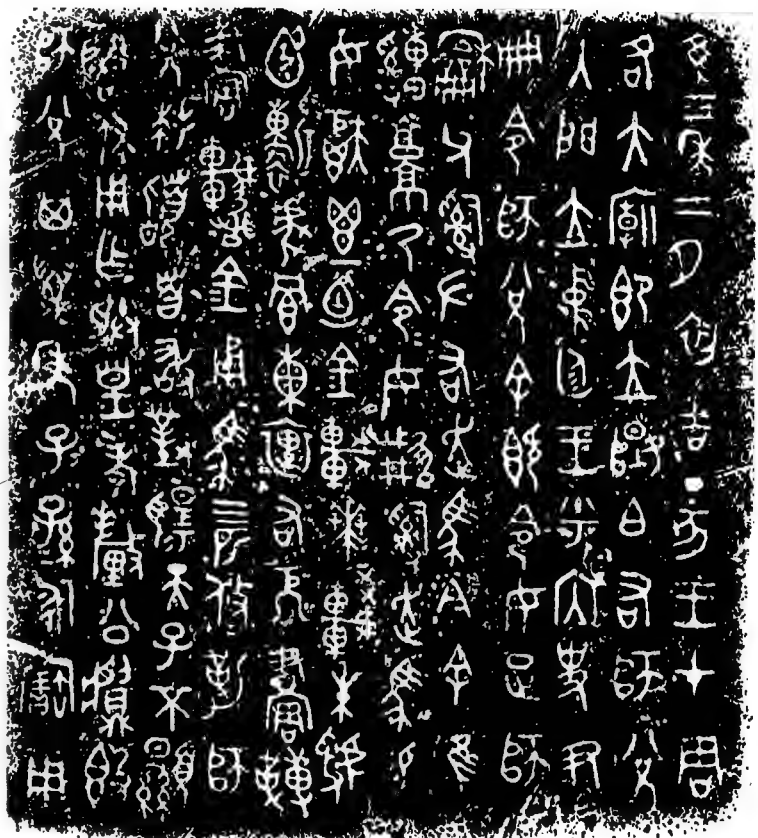 隹三年二月初吉丁亥王才周
各大廟即立𨻰白右師兌
入門立中廷王乎內史尹
冊令師兌余既令女疋師
龢父𤔲左右走馬今余隹
䌛𩫨乃令令女𤔲走馬易
女秬鬯一卣金車賁較朱虢
靳虎冟熏裏右厄畫轉
畫金甬馬四匹攸勒師
兌拜𩒨首敢對揚天子不顯
魯休用乍朕皇考釐公䵼簋
師兌其萬年子子孫孫永寶用